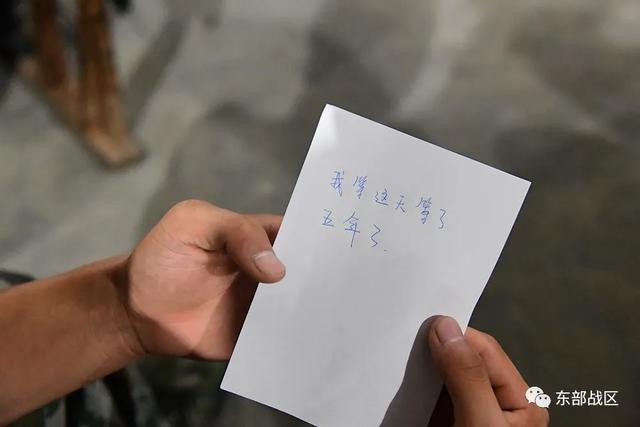 我等这天等了
五年了.
东部战区